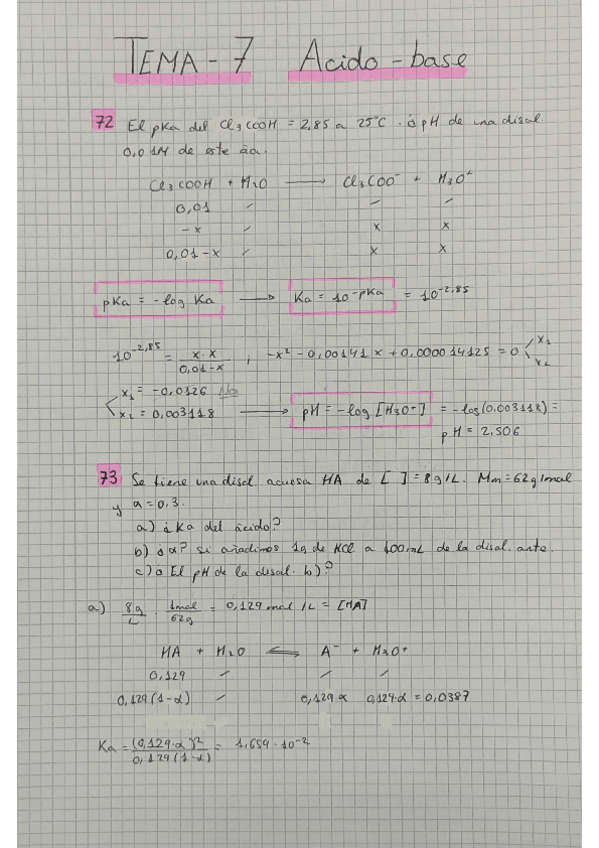 TEMA - 7 Acido - base
72 El pKa del Cl3CCOOH = 2,85 a 25ºC. ¿pH de una disol.
0,01M de este ác.
Cl3CCOOH + H2O ⟶ Cl3COO⁻ + H3O⁺
0,01 - - -
-x - x x
0,01-x - x x
pKa = -log Ka ⟶ Ka = 10^-pKa = 10^-2,85
10^-2,85 = x·x / 0,01-x ; -x² - 0,00141x + 0,000014125 = 0 < x1 x2
x1 = -0,0126 No
x2 = 0,003118 ⟶ pH = -log [H3O⁺] = -log(0,003118) =
pH = 2,506
73 Se tiene una disol acuosa HA de [ ] = 8g/L. Mm = 62g/mol
y α = 0,3.
a) ¿Ka del ácido?
b) ¿α? si añadimos 1g de HCl a 400mL de la disol. ante.
c) ¿El pH de la disol. b)?
a) 8g/L · 1mol/62g = 0,129mol/L = [HA]
HA + H2O ⇌ A⁻ + H3O⁺
0,129 - - -
0,129(1-α) - 0,129·α 0,129·α = 0,0387
Ka = (0,129·α)² / 0,129(1-α) = 1,659·10^-2